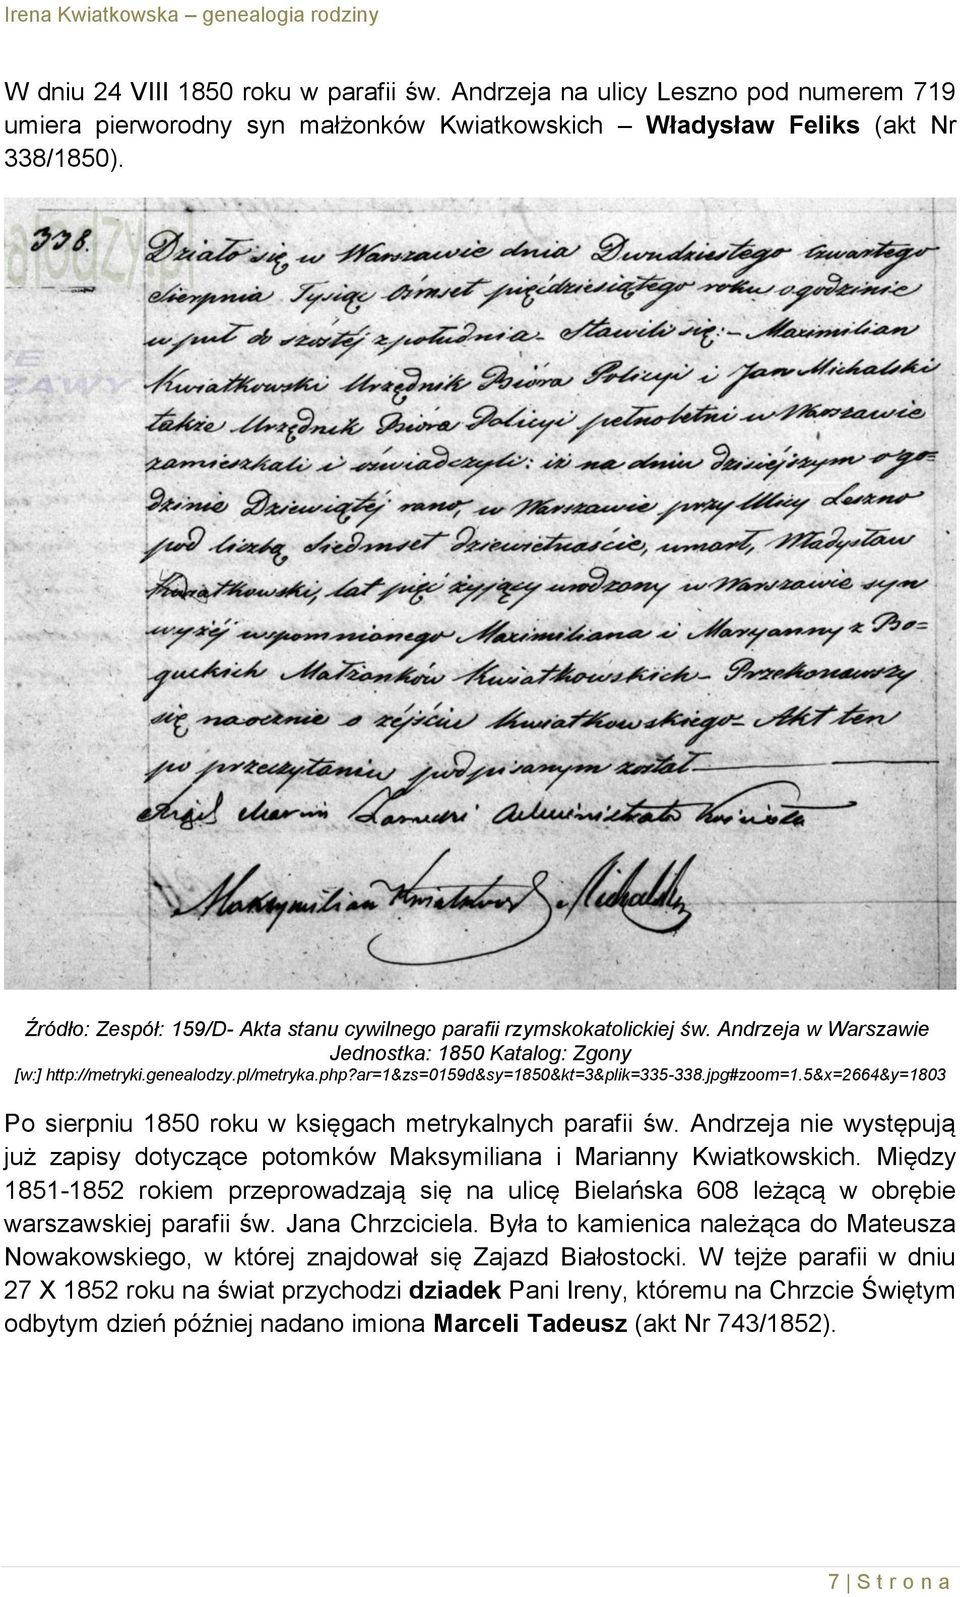 Irena Kwiatkowska – genealogia rodziny
W dniu 24 VIII 1850 roku w parafii św. Andrzeja na ulicy Leszno pod numerem 719
umiera pierworodny syn małżonków Kwiatkowskich – Władysław Feliks (akt Nr
338/1850).
338.
Działo się w Warszawie dnia Dwudziestego Czwartego
Sierpnia Tysiąc Ośmset pięćdziesiątego roku o godzinie
w puł do szóstéj z południa- Stawili się:- Maximilian
Kwiatkowski Urzędnik Bióra Policyi i Jan Michalski
także Urzędnik Bióra Policyi pełnoletni w Warszawie
zamieszkali i oświadczyli: iż na dniu dzisiéjszym o go=
dzinie Dziewiątéj rano, w Warszawie przy Ulicy Leszno
pod liczbą Siedmset dziewietnaście, umarł, Władysław
Kwiatkowski, lat pięć żyjący urodzony w Warszawie syn
wyżéj wspomnionego Maximiliana i Maryanny z Bo=
guckich Małżonków Kwiatkowskich- Przekonawszy
się naocznie o zéjściu Kwiatkowskiego- Akt ten
po przeczytaniu podpisanym został
Marcin Administrator Kościoła
Maksymilian Kwiatkowski Michalski
Źródło: Zespół: 159/D- Akta stanu cywilnego parafii rzymskokatolickiej św. Andrzeja w Warszawie
Jednostka: 1850 Katalog: Zgony
[w:] http://metryki.genealodzy.pl/metryka.php?ar=1&zs=0159d&sy=1850&kt=3&plik=335-338.jpg#zoom=1.5&x=2664&y=1803
Po sierpniu 1850 roku w księgach metrykalnych parafii św. Andrzeja nie występują
już zapisy dotyczące potomków Maksymiliana i Marianny Kwiatkowskich. Między
1851-1852 rokiem przeprowadzają się na ulicę Bielańska 608 leżącą w obrębie
warszawskiej parafii św. Jana Chrzciciela. Była to kamienica należąca do Mateusza
Nowakowskiego, w której znajdował się Zajazd Białostocki. W tejże parafii w dniu
27 X 1852 roku na świat przychodzi dziadek Pani Ireny, któremu na Chrzcie Świętym
odbytym dzień później nadano imiona Marceli Tadeusz (akt Nr 743/1852).
7 | S t r o n a